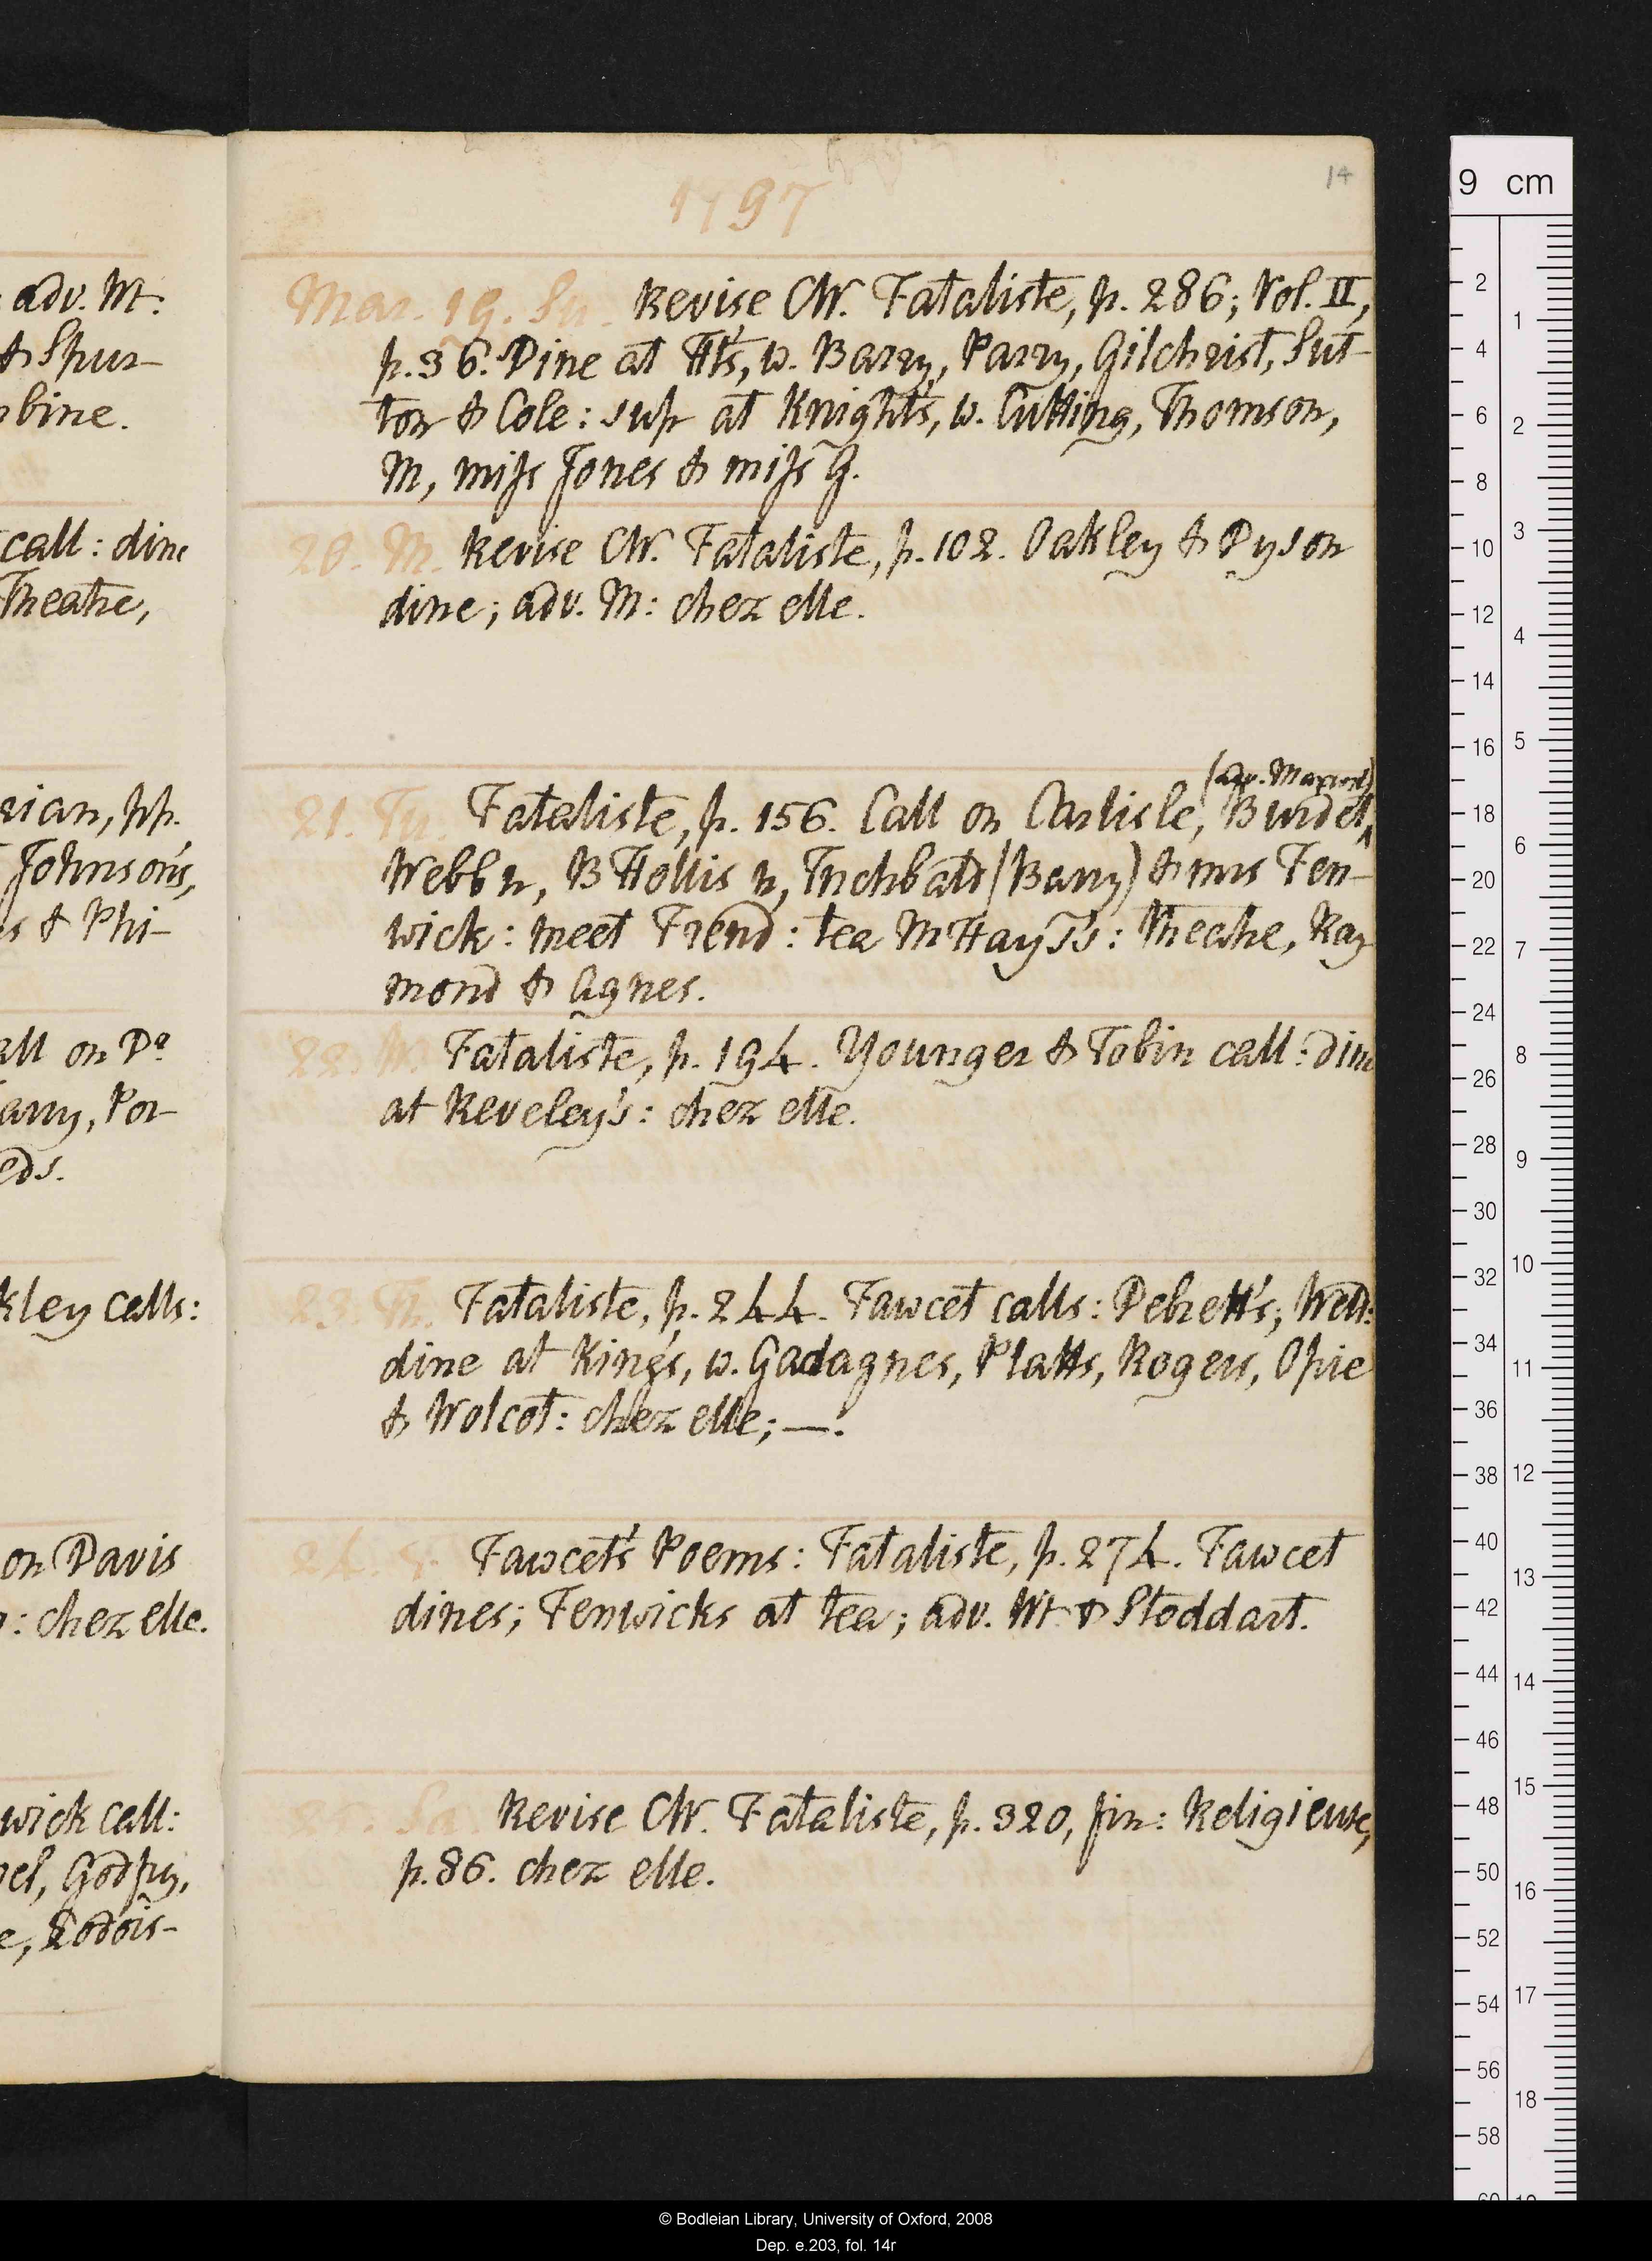 1797
14
adv. M:
& Spur-
bine.
call: dine
Theatre,
rian, pp.
Johnson's,
s & Phi-
all on Dr
arry, Por-
eds.
kley calls:
on Davis
: chez elle.
wick call:
el, Godfry,
e, Lodois-
Mar. 19. Su. Revise CW. Fataliste, p. 286; Vol. II,
p. 36. Dine at Ht's, w. Barry, Parry, Gilchrist, Sut-
ton & Cole: sup at Knight's, w. Cutting, Thomson,
M, miss Jones & miss G.
20. M. Revise CW. Fataliste, p. 102. Oakley & Dyson
dine; adv. M: chez elle.
(adv. Maxwel)
21. Tu. Fataliste, p. 156. Call on Carlisle, Burdet^,
Webb n, B Hollis n, Inchbald (Barry) & mrs Fen-
wick: meet Frend: tea M Hays's: Theatre, Ray
mond & Agnes.
22. W. Fataliste, p. 194. Younger & Tobin call: dine
at Reveley's: chez elle.
23. Th. Fataliste, p. 244. Fawcet calls: Debrett's; Wedd:
dine at King's, w. Gadagnes, Platts, Rogers, Opie
& Wolcot: chez elle; —.
24. F. Fawcet's Poems: Fataliste, p. 274. Fawcet
dines; Fenwicks at tea; adv. Wt & Stoddart.
25. Sa. Revise CW. Fataliste, p. 320, fin: Religieuse,
p. 86. chez elle.
9 cm
2
4
6
8
10
12
14
16
18
20
22
24
26
28
30
32
34
36
38
40
42
44
46
48
50
52
54
56
58
60
1
2
3
4
5
6
7
8
9
10
11
12
13
14
15
16
17
18
© Bodleian Library, University of Oxford, 2008
Dep. e.203, fol. 14r